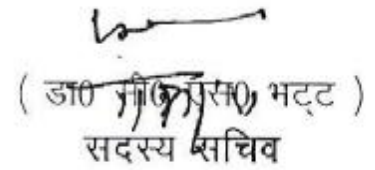 ( डा0 सी0 एस0 भट्ट )
सदस्य सचिव